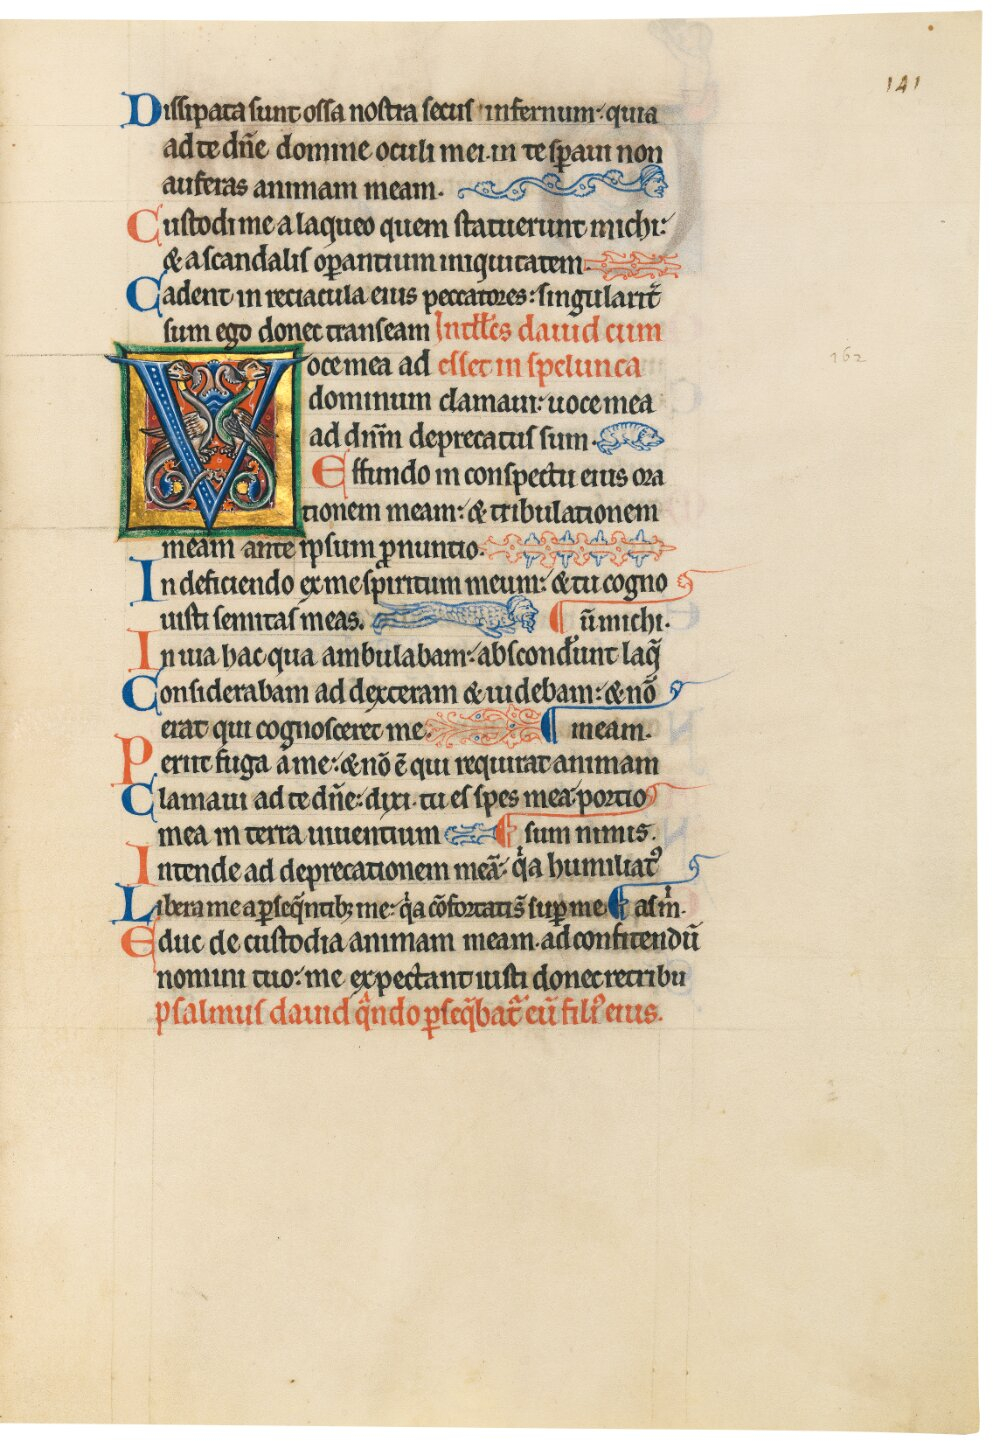 141
Dissipata sunt ossa nostra secus infernum: quia
ad te dñe domine oculi mei. in te speraui non
auferas animam meam.
Custodi me a laqueo quem statuerunt michi:
& a scandalis oꝑantium iniquitatem.
Cadent in retiacula eius peccatores: singularit̃
sum ego donec transeam Intll̃cs dauid cum
Voce mea ad esset in spelunca
dominum clamaui: uoce mea
ad dñm deprecatus sum.
Effundo in conspectu eius ora
tionem meam: & tribulationem
meam ante ipsum ꝓnuntio.
In deficiendo ex me spiritum meum: & tu cogno
uisti semitas meas. ũ michi.
In uia hac qua ambulabam: absconder̃unt laq̃
Considerabam ad dexteram & uidebam: & nõ
erat qui cognosceret me. meam.
Periit fuga a me: & nõ ẽ qui requirat animam
Clamaui ad te dñe: dixi. tu es spes mea. portio
mea in terra uiuentium sum nimis.
Intende ad deprecationem meã. qͥa humiliatꝰ
Libera me a ꝑseq̃ntibꝫ me: qͥa cõfortati s̃ suꝑ me. as m̃.
Educ de custodia animam meam. ad confitendũ
nomini tuo: me expectant iusti donec retribu
psalmus dauid qͣndo ꝑseq̃bat̃ eũ filiꝰ eius.
162